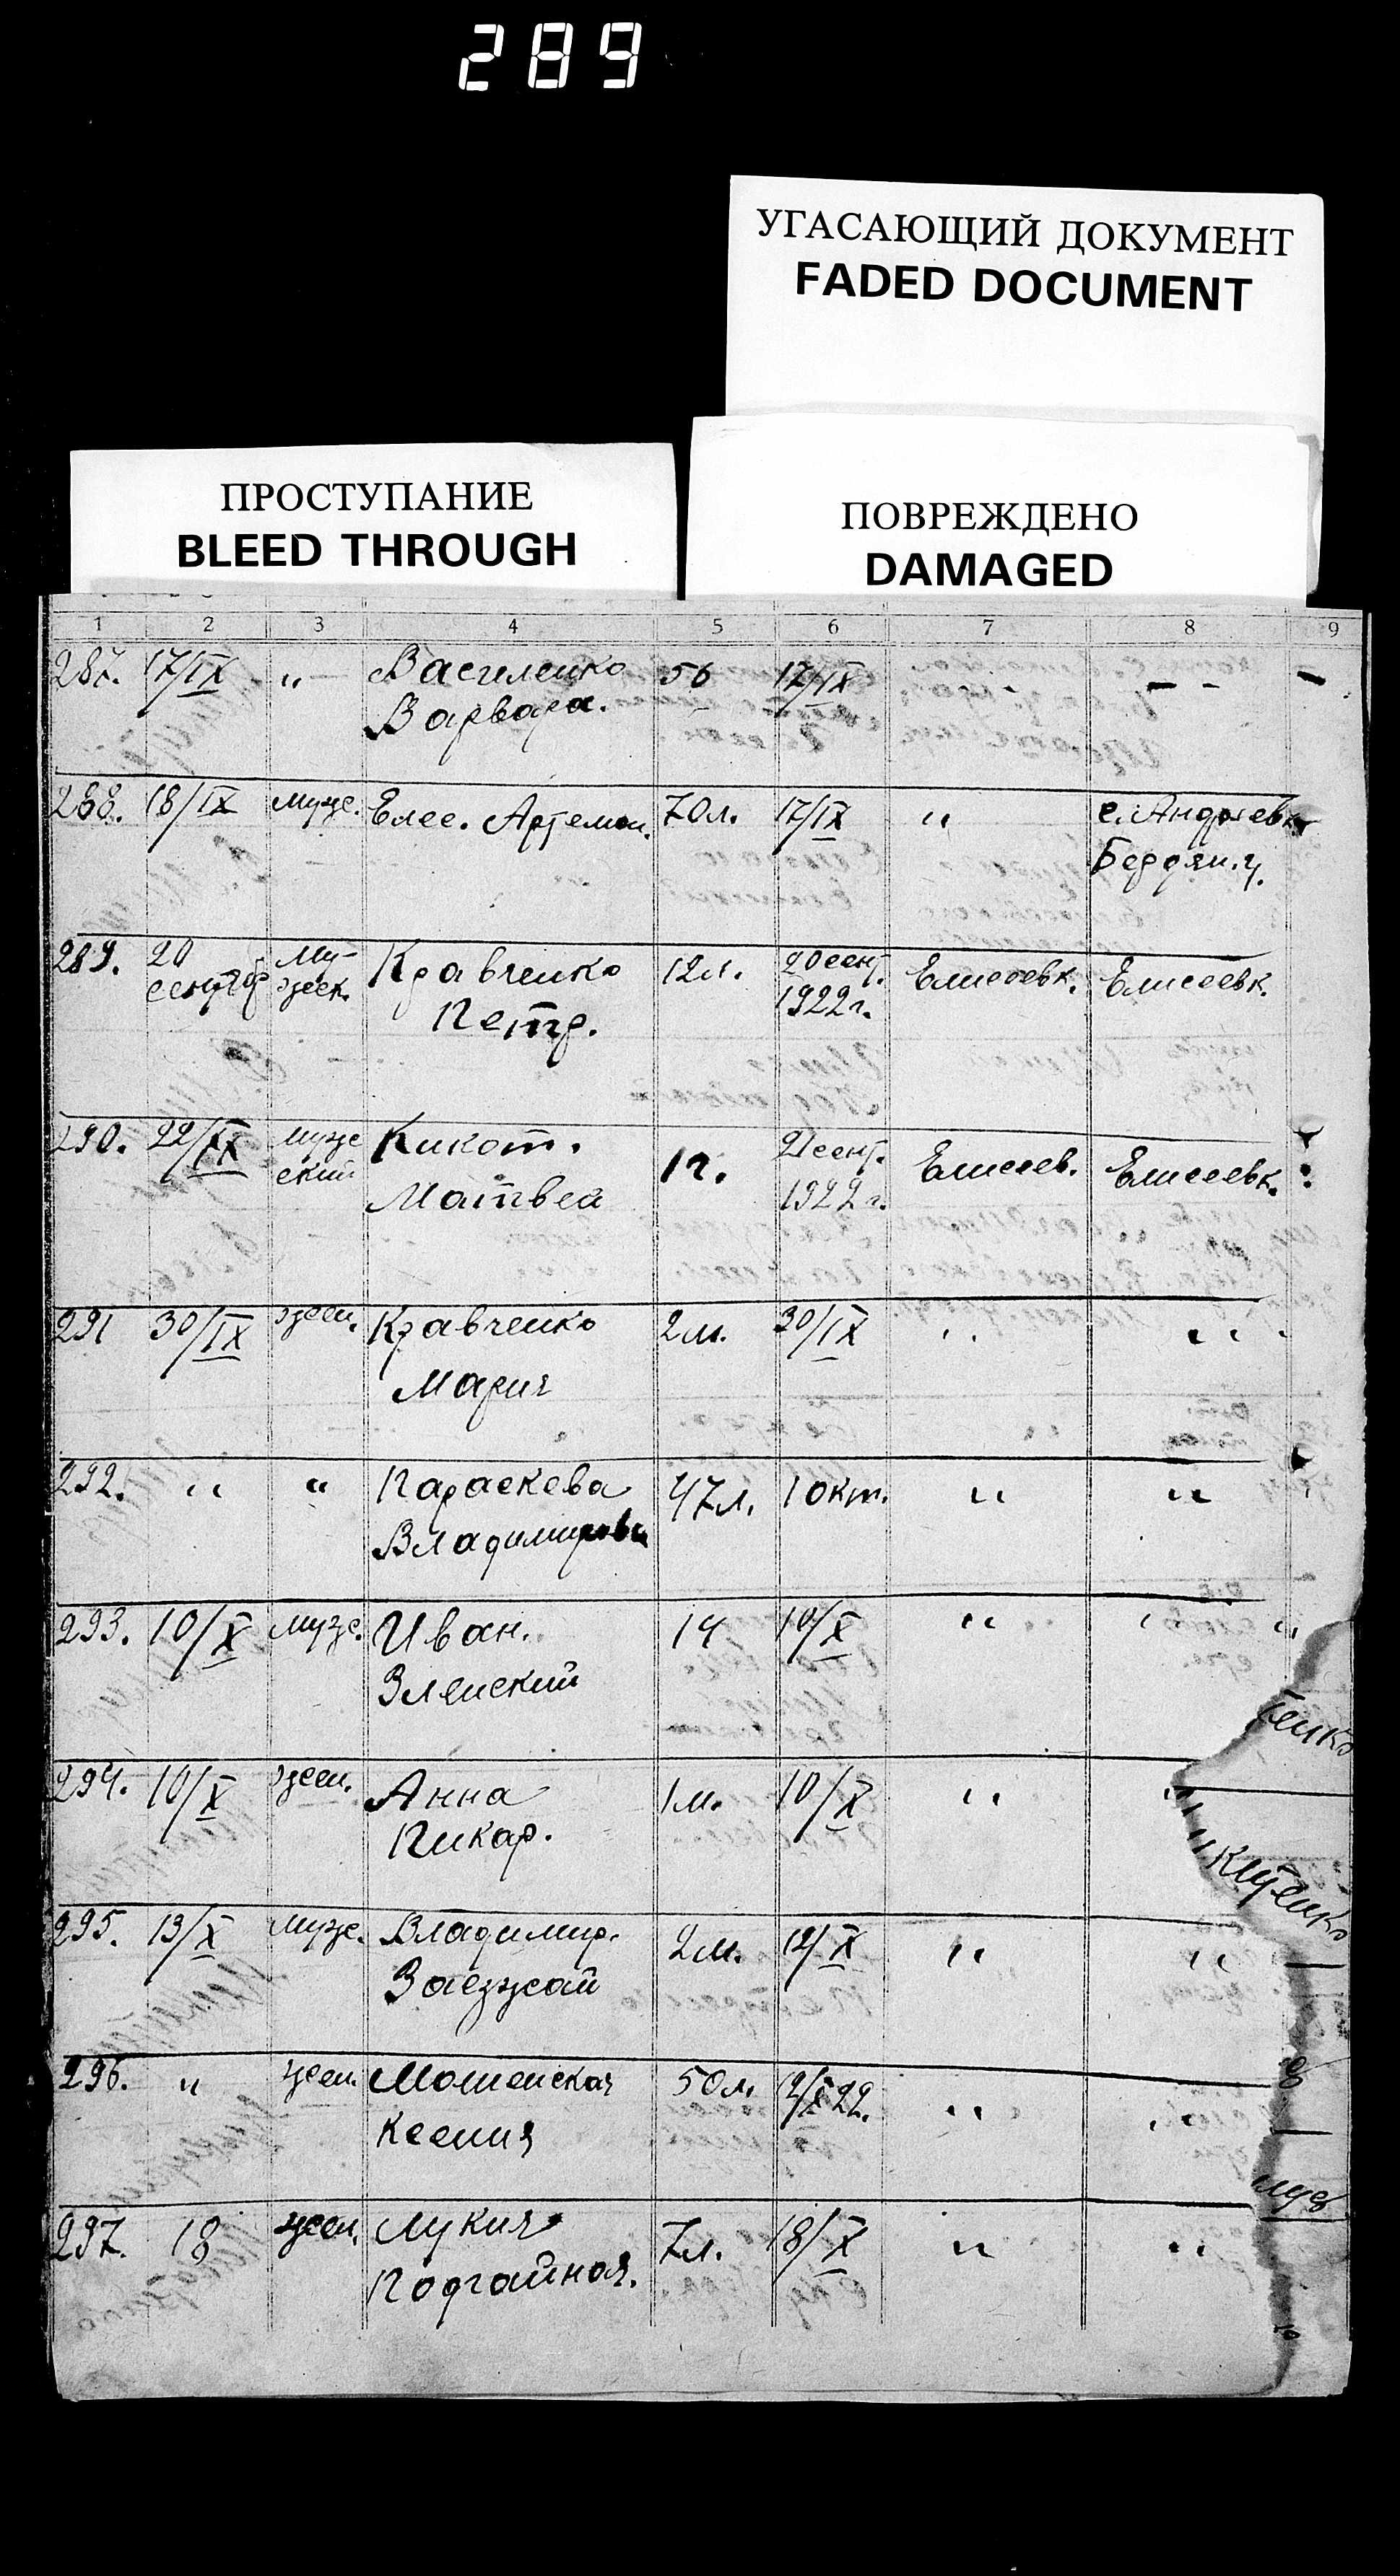 289
УГАСАЮЩИЙ ДОКУМЕНТ
FADED DOCUMENT
ПРОСТУПАНИЕ
BLEED THROUGH
ПОВРЕЖДЕНО
DAMAGED
1 2 3 4 5 6 7 8 9
287. 17/IX „ Василенко 56 17/IX - - -
Варвара.
288. 18/IX муж. Елес. Артемон. 70л. 17/IX „ с. Андреевк
Бердян. у.
289. 20 Му- Кравченко 12л. 20 сент. Елисеевк. Елисеевк.
сентяб жск. Петр. 1922г.
290. 22/IX муж Кикот. 1г. 21 сент. Елисеев. Елисеевк.
ский Матвей 1922г.
291 30/IX жен. Кравченко 2м. 30/IX „ „
Мария
292. „ „ Параскева 47л. 1 окт. „ „
Владимирова
293. 10/X муж. Иван. 14 10/X „ „ „
Зленский
енко
294. 10/X жен. Анна 1м. 10/X „ „
Пикар.
295. 13/X муж. Владимир. 2м. 12/X „ „
Заезжай
296. „ жен. Мошенская 50л. 12/X 22. „ „
Ксения
297. 18 жен. Лукия 7л. 18/X „ „
Подгайная.